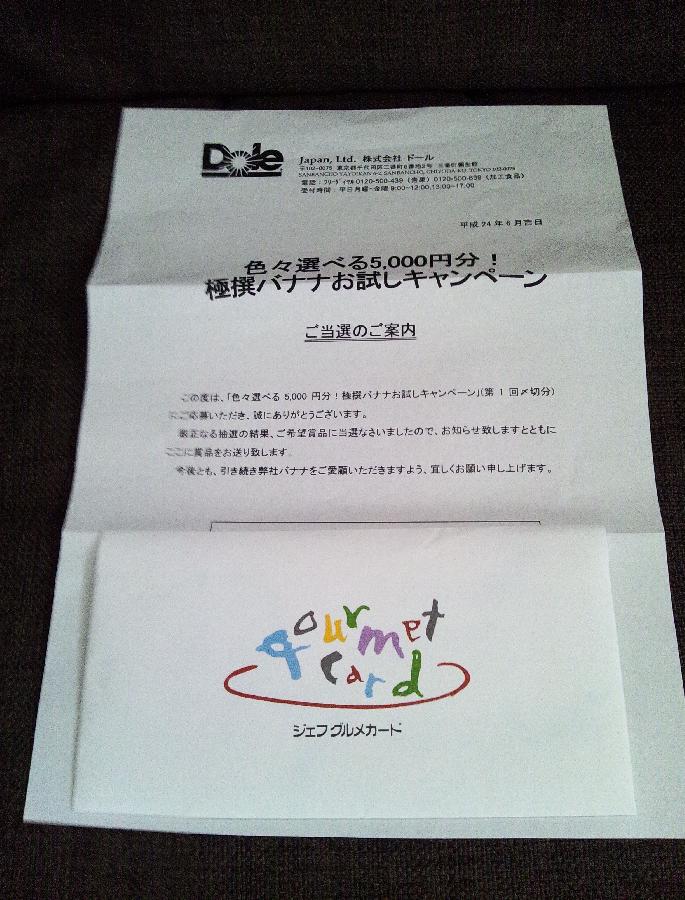 Dole
Japan, Ltd. 株式会社 ドール
〒102-0075 東京都千代田区三番町6番地2号 三番町彌生館
SANBANCHO YAYOIKAN 6-2, SANBANCHO, CHIYODA-KU, TOKYO 102-0075
電話：フリーダイヤル 0120-500-439（青果）0120-500-639（加工食品）
受付時間：平日月曜～金曜 9:00~12:00,13:00~17:00
平成 24 年 6 月吉日
色々選べる5,000円分！
極撰バナナお試しキャンペーン
ご当選のご案内
この度は、「色々選べる 5,000 円分！極撰バナナお試しキャンペーン」（第 1 回〆切分）
にご応募いただき、誠にありがとうございます。
厳正なる抽選の結果、ご希望賞品に当選なさいましたので、お知らせ致しますとともに
ここに賞品をお送り致します。
今後とも、引き続き弊社バナナをご愛顧いただきますよう、宜しくお願い申し上げます。
gourmet
card
ジェフグルメカード